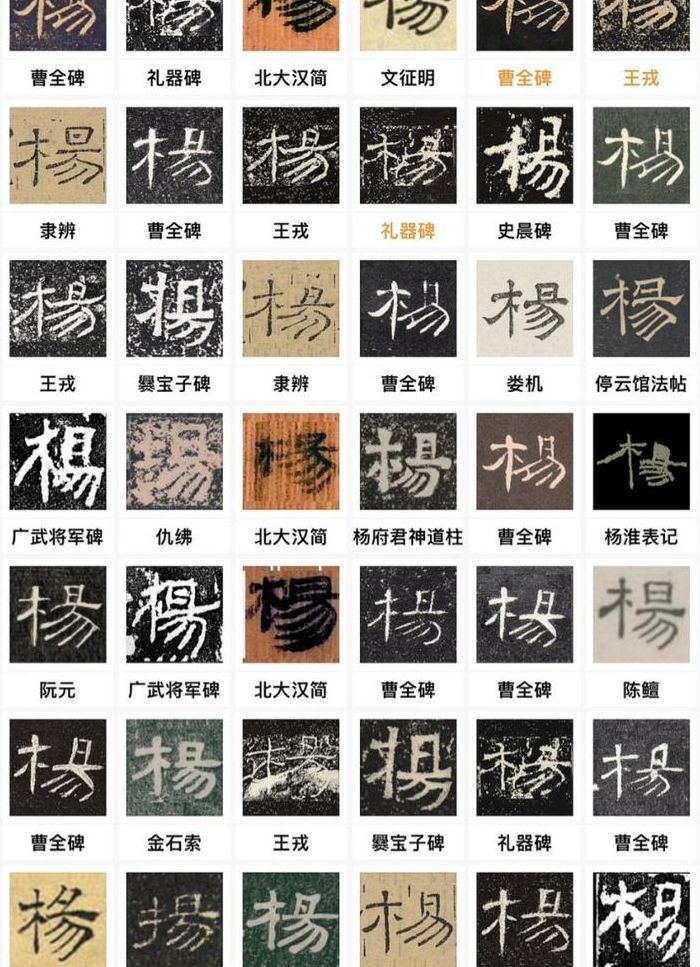 曹全碑 礼器碑 北大汉简 文征明 曹全碑 王戎
楊 楊 楊 楊 楊 楊
隶辨 曹全碑 王戎 礼器碑 史晨碑 曹全碑
楊 楊 楊 楊 楊 楊
王戎 爨宝子碑 隶辨 曹全碑 娄机 停云馆法帖
楊 楊 楊 楊 楊 楊
广武将军碑 仇绋 北大汉简 杨府君神道柱 曹全碑 杨淮表记
楊 楊 楊 楊 楊 楊
阮元 广武将军碑 北大汉简 曹全碑 曹全碑 陈鳣
楊 楊 楊 楊 楊 楊
曹全碑 金石索 王戎 爨宝子碑 礼器碑 曹全碑
楊 揚 楊 楊 楊 楊